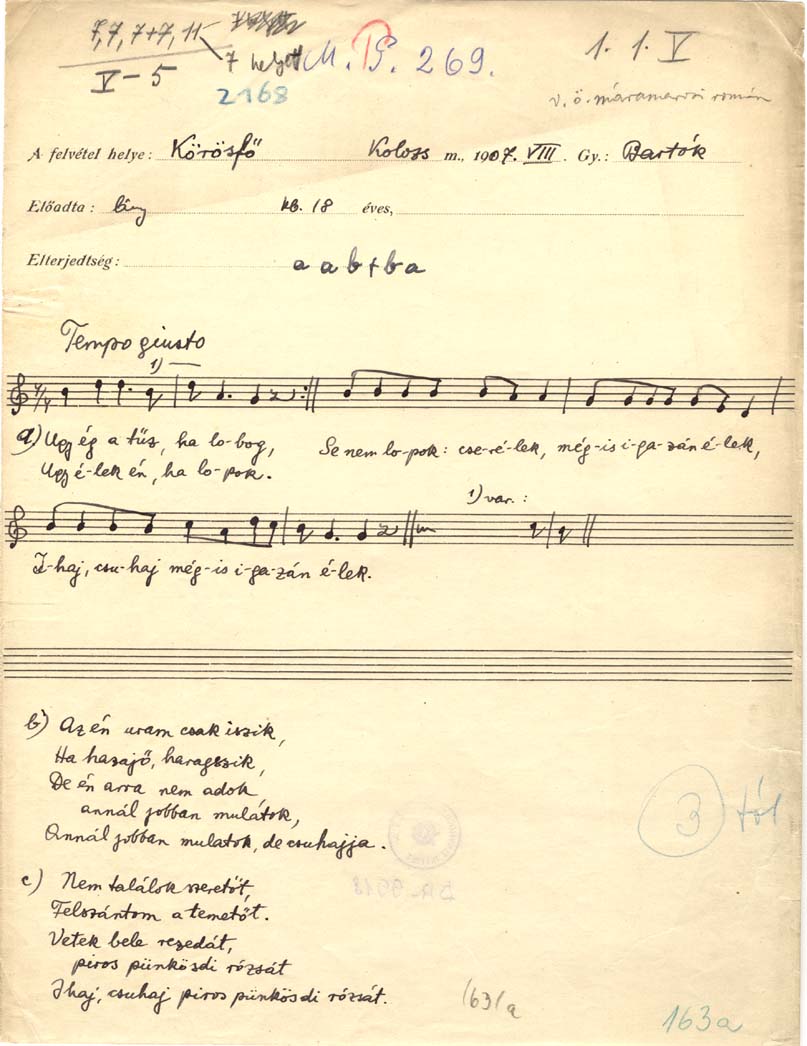 7, 7, 7+7, 11
7 helyett
V-5
M. F. 269.
2168
1. 1. V
v. ö. máramarosi román
A felvétel helye: Körösfő Kolozs m., 1907. VIII. Gy.: Bartók
Előadta: lány kb. 18 éves,
Elterjedtség:
a a b + b a
Tempo giusto
1)
a) Ugy ég a tűz, ha lo-bog, Se nem lo-pok: cse-ré-lek, még-is i-ga-zán é-lek,
Ugy é-lek én, ha lo-pok.
1) var.:
I-haj, csu-haj még-is i-ga-zán é-lek.
b) Az én uram csak iszik,
Ha hazajő, haragszik,
De én arra nem adok
annál jobban mulatok,
Annál jobban mulatok, de csuhajja.
3 tól
c) Nem találok szeretőt,
Felszántom a temetőt.
Vetek bele rezedát,
piros pünkösdi rózsát
Ihaj, csuhaj piros pünkösdi rózsát.
163/a
163a